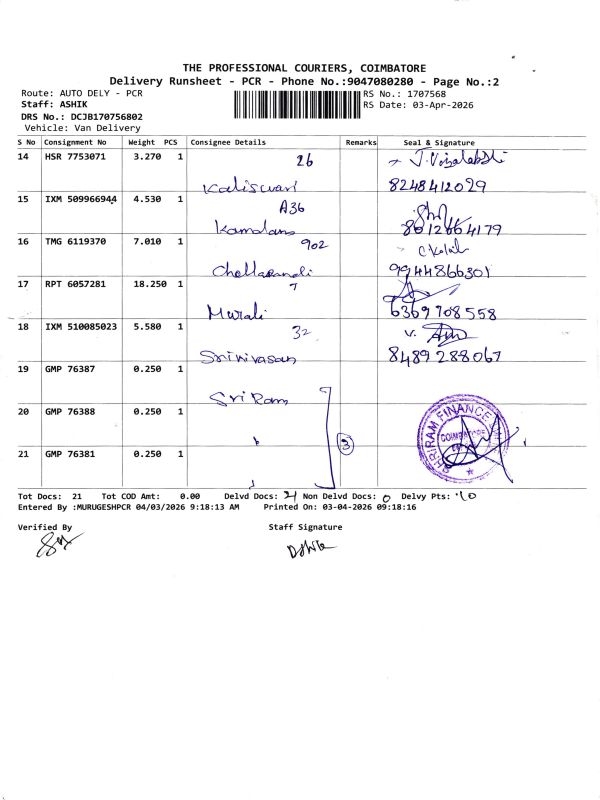 THE PROFESSIONAL COURIERS, COIMBATORE
Delivery Runsheet - PCR - Phone No.:9047080280 - Page No.:2
Route: AUTO DELY - PCR
RS No.: 1707568
Staff: ASHIK
RS Date: 03-Apr-2026
DRS No.: DCJB170756802
Vehicle: Van Delivery
S No Consignment No Weight PCS Consignee Details Remarks Seal & Signature
14 HSR 7753071 3.270 1 26
Kaliswari 8248412029
15 IXM 509966944 4.530 1 A36
16 TMG 6119370 7.010 1 902
9944866301
17 RPT 6057281 18.250 1 7
Murali 6369708558
18 IXM 510085023 5.580 1 32 V.
Srinivasan 8489288067
19 GMP 76387 0.250 1
Sri Ram
20 GMP 76388 0.250 1
3
SHRIRAM FINANCE
COIMBATORE
21 GMP 76381 0.250 1
Tot Docs: 21 Tot COD Amt: 0.00 Delvd Docs: 21 Non Delvd Docs: 0 Delvy Pts: 10
Entered By :MURUGESHPCR 04/03/2026 9:18:13 AM Printed On: 03-04-2026 09:18:16
Verified By Staff Signature